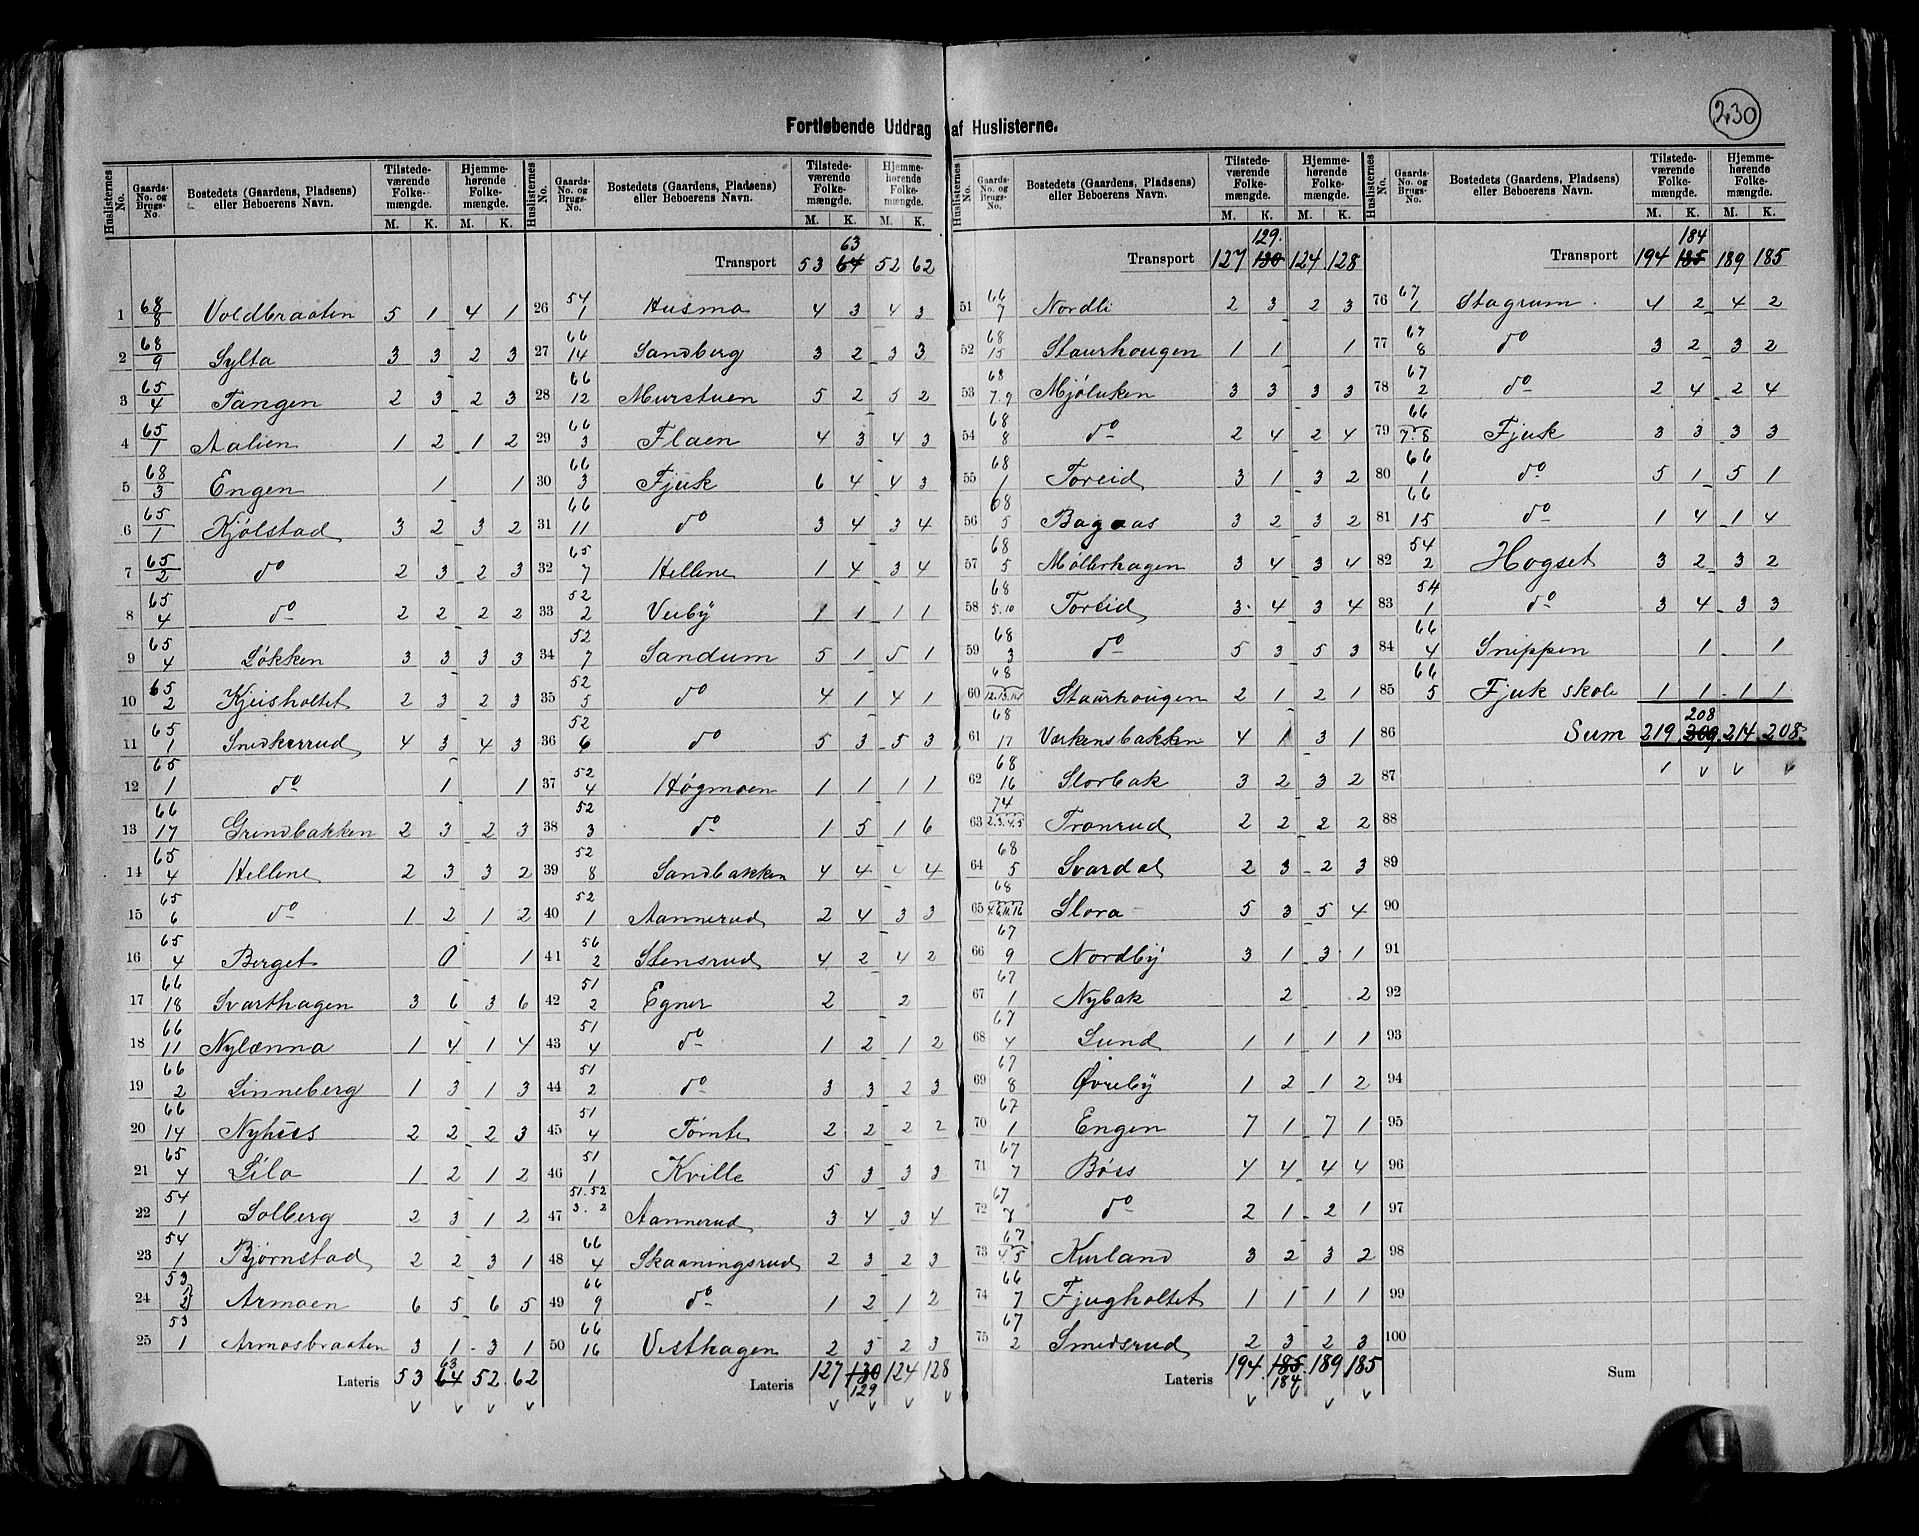 230
Fortløbende Uddrag af Huslisterne.
Huslisternes No. | Gaards-No. og Brugs-No. | Bostedets (Gaardens, Pladsens) eller Beboerens Navn. | Tilstedeværende Folkemængde. M. K. | Hjemmehørende Folkemængde. M. K.
1 68/8 Voldbraaten 5 1 4 1
2 68/9 Sylta 3 3 2 3
3 65/4 Tangen 2 3 2 3
4 65/1 Aalien 1 2 1 2
5 68/3 Engen 1 1
6 65/1 Kjølstad 3 2 3 2
7 65/2 do 2 3 2 3
8 65/4 do 2 2 2 2
9 65/4 Løkken 3 3 3 3
10 65/2 Kjeisholtet 2 3 2 3
11 65/1 Snedkerrud 4 3 4 3
12 65/1 do 1 1
13 66/17 Grindbakken 2 3 2 3
14 65/4 Hellene 2 3 3 2
15 65/6 do 1 2 1 2
16 65/4 Berget 0 1
17 66/18 Svarthagen 3 6 3 6
18 66/11 Nylænna 1 4 1 4
19 66/2 Linneberg 1 3 1 3
20 66/14 Nyhus 2 2 2 3
21 65/4 Lilo 1 2 1 2
22 54/1 Solberg 2 3 1 2
23 54/1 Bjørnstad 2 2 3 1
24 53/2 Armoen 6 5 6 5
25 53/1 Armosbraaten 3 1 3 1
Lateris 53 64 63 52 62
Huslisternes No. | Gaards-No. og Brugs-No. | Bostedets (Gaardens, Pladsens) eller Beboerens Navn. | Tilstedeværende Folkemængde. M. K. | Hjemmehørende Folkemængde. M. K.
Transport 53 64 63 52 62
26 54/1 Husmo 4 3 4 3
27 66/14 Sandberg 3 2 3 3
28 66/12 Murstuen 5 2 5 2
29 66/3 Flaen 4 3 4 3
30 66/3 Fjuk 6 4 4 3
31 66/11 do 3 4 3 4
32 65/7 Hellene 1 4 3 4
33 52/2 Veiby 1 1 1 1
34 52/7 Sandum 5 1 5 1
35 52/5 do 4 1 4 1
36 52/6 do 5 3 5 3
37 52/4 Høgmoen 1 1 1 1
38 52/3 do 1 5 1 6
39 52/8 Sandbakken 4 4 4 4
40 52/1 Aannerud 2 4 3 3
41 56/2 Stensrud 4 2 4 2
42 51/2 Egner 2 2
43 51/4 do 1 2 1 2
44 51/2 do 3 3 2 3
45 51/4 Tømte 2 2 2 2
46 51/1 Kville 5 3 3 3
47 51.52/3.2 Aannerud 3 4 3 4
48 66/4 Skaaningsrud 2 3 2 3
49 66/9 do 1 2 1 2
50 66/16 Vesthagen 2 3 2 3
Lateris 127 130 129 124 128
Huslisternes No. | Gaards-No. og Brugs-No. | Bostedets (Gaardens, Pladsens) eller Beboerens Navn. | Tilstedeværende Folkemængde. M. K. | Hjemmehørende Folkemængde. M. K.
Transport 127 130 129. 124 128
51 66/7 Nordli 2 3 2 3
52 68/15 Staurhougen 1 1 1
53 68/7.9 Mjøluken 3 3 3 3
54 68/8 do 2 4 2 4
55 68/1 Toreid 3 1 3 2
56 68/5 Bagaas 3 2 3 2
57 68/5 Møllerhagen 3 4 3 4
58 68/5.10 Toreid 3 4 3 4
59 68/3 do 5 3 5 3
60 68/12.13.14 Staurhougen 2 1 2 1
61 68/17 Værkensbakken 4 1 3 1
62 68/16 Storbak 3 2 3 2
63 74/2.3.4.5 Tronrud 2 2 2 2
64 68/5 Svardal 2 3 2 3
65 68/4.6.11.16 Slora 5 3 5 4
66 67/9 Nordby 3 1 3 1
67 67/1 Nybak 2 2
68 67/4 Lund 1 1 1 1
69 67/8 Øvreby 1 2 1 2
70 67/1 Engen 7 1 7 1
71 67/7 Bøes 4 4 4 4
72 67/7 do 2 1 2 1
73 67/4.5 Kurland 3 2 3 2
74 66/7 Fjugholtet 1 1 1 1
75 67/2 Smedsrud 2 3 2 3
Lateris 194 185 184 189 185
Huslisternes No. | Gaards-No. og Brugs-No. | Bostedets (Gaardens, Pladsens) eller Beboerens Navn. | Tilstedeværende Folkemængde. M. K. | Hjemmehørende Folkemængde. M. K.
Transport 194 185 184 189 185
76 67/1 Stagrum 4 2 4 2
77 67/8 do 3 2 3 2
78 67/2 do 2 4 2 4
79 66/7.8 Fjuk 3 3 3 3
80 66/1 do 5 1 5 1
81 66/15 do 1 4 1 4
82 54/2 Hogset 3 2 3 2
83 54/1 do 3 4 3 3
84 66/4 Snippen 1 1
85 66/5 Fjuk skole 1 1 1 1
86 Sum 219 309 208 214 208
87
88
89
90
91
92
93
94
95
96
97
98
99
100
Sum